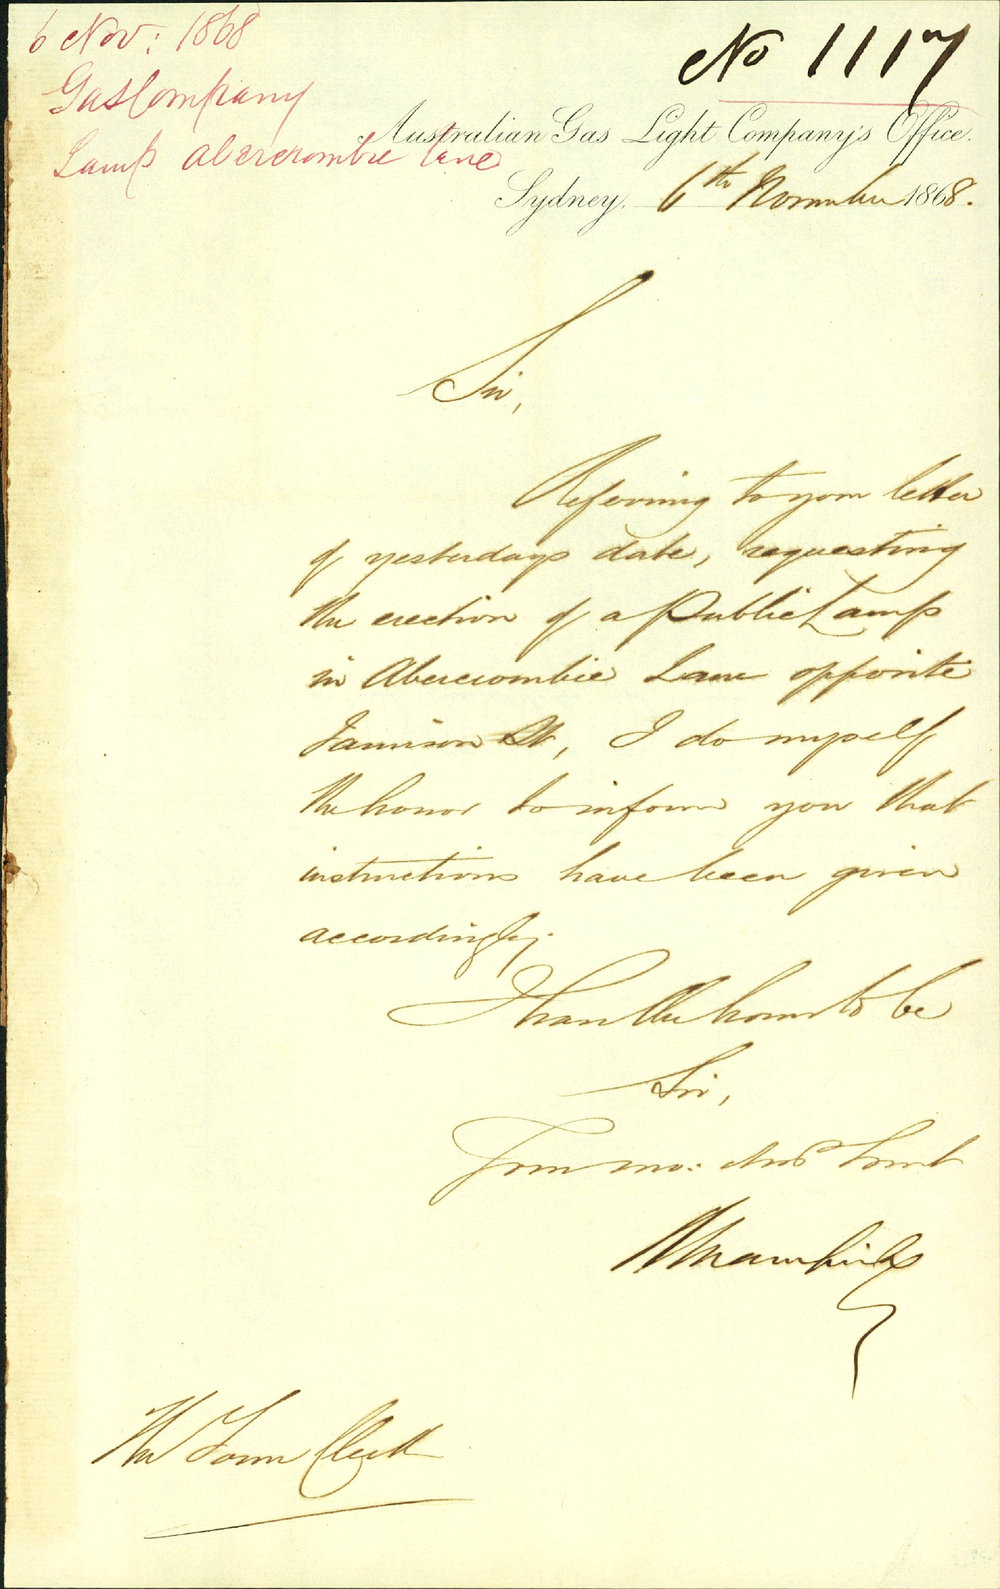 6 Nov: 1868
Gas Company
Lamp Abercrombie Lane
No 1117
Australian Gas Light Company's Office.
Sydney, 6th November 1868.
Sir,
Referring to your letter
of yesterdays date, requesting
the erection of a Public Lamp
in Abercrombie Lane opposite
Jamison St, I do myself
the honor to inform you that
instructions have been given
accordingly.
I have the honor to be
Sir,
Your mo: obed Servt
The Town Clerk